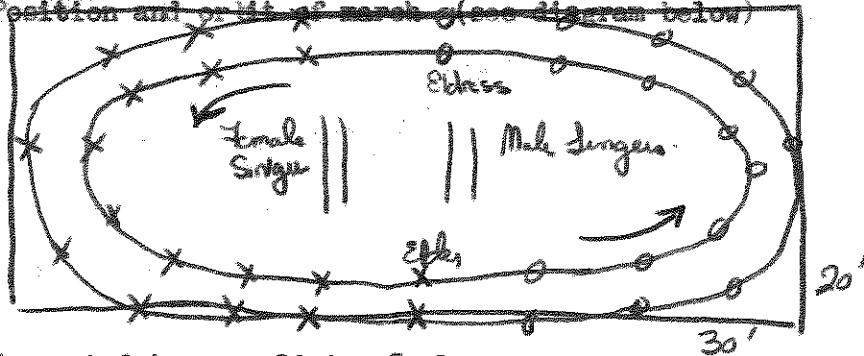 Position and orbit of march (see diagram below)
Eldress
Female
Singers
Male Singers
Elder
20'
30'